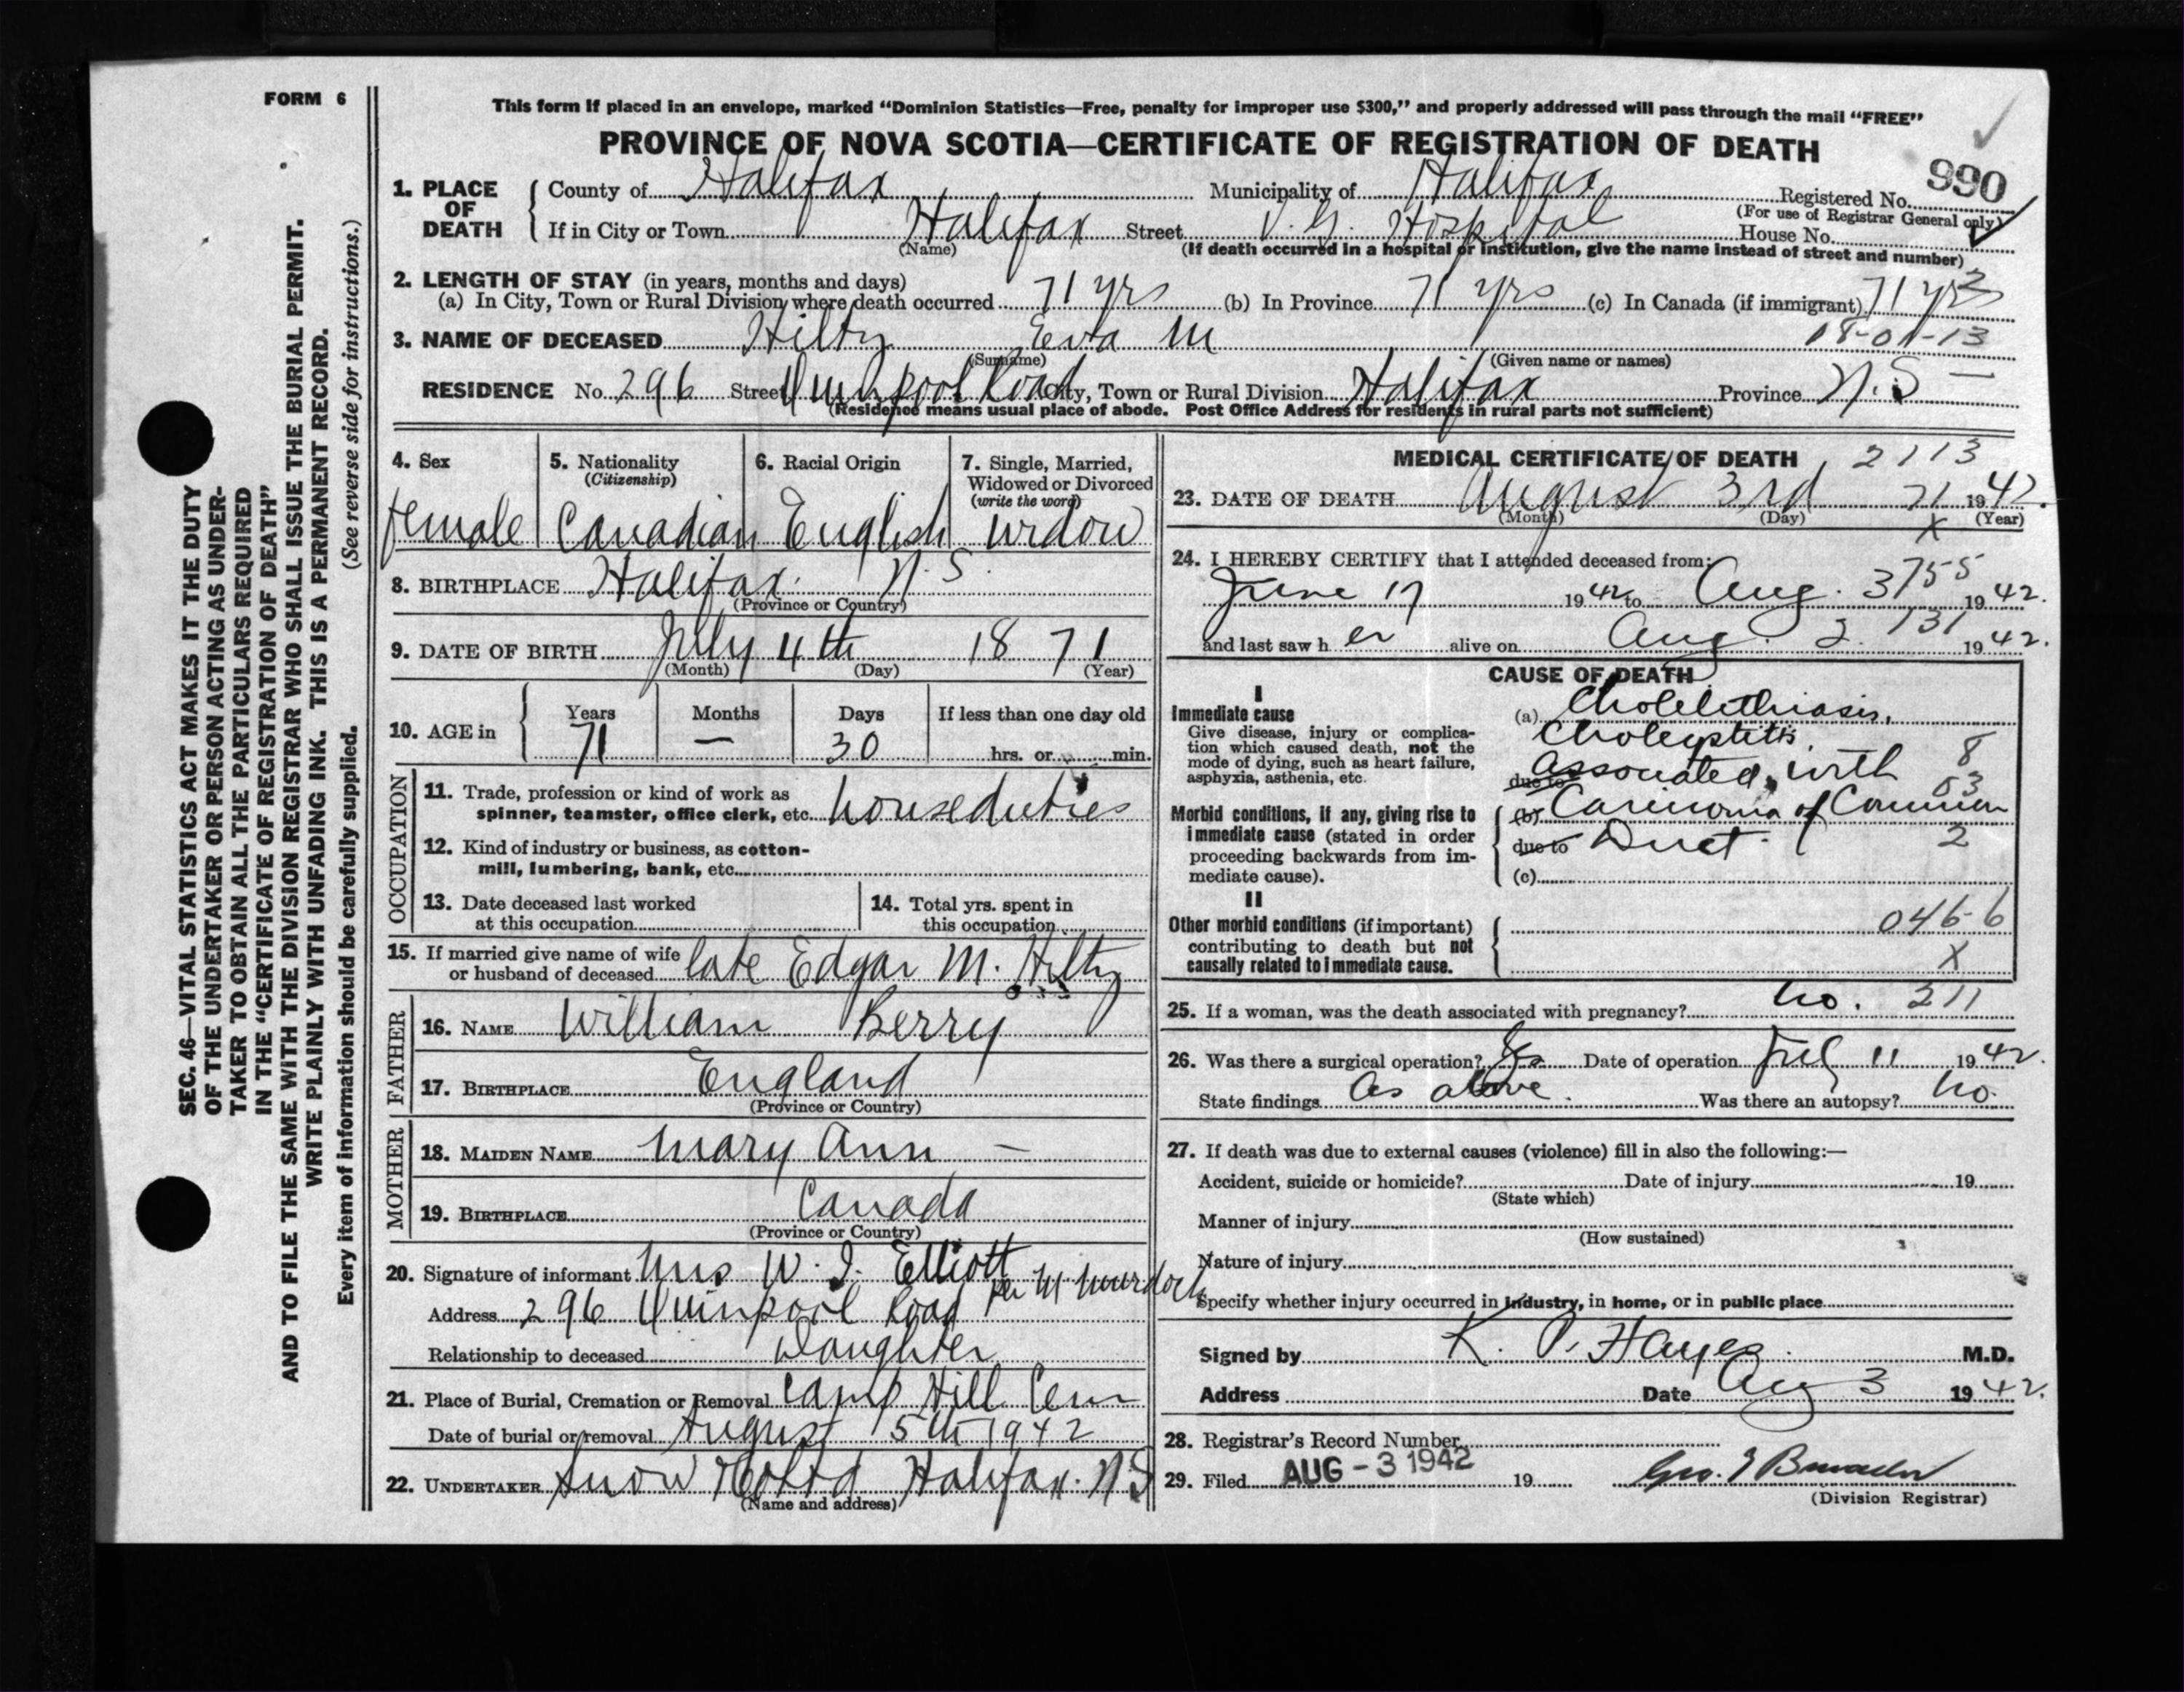 FORM 6
This form if placed in an envelope, marked “Dominion Statistics—Free, penalty for improper use $300,” and properly addressed will pass through the mail “FREE”
PROVINCE OF NOVA SCOTIA—CERTIFICATE OF REGISTRATION OF DEATH
990
1. PLACE OF DEATH { County of Halifax Municipality of Halifax Registered No.
(For use of Registrar General only)
If in City or Town Halifax Street V. G. Hospital House No.
(Name) (If death occurred in a hospital or institution, give the name instead of street and number)
2. LENGTH OF STAY (in years, months and days)
(a) In City, Town or Rural Division where death occurred 71 yrs (b) In Province 71 yrs (c) In Canada (if immigrant) 71 yrs
3. NAME OF DECEASED Hilty Eva M
(Surname) (Given name or names)
RESIDENCE No. 296 Street Quinpool Road City, Town or Rural Division Halifax Province N.S
(Residence means usual place of abode. Post Office Address for residents in rural parts not sufficient)
4. Sex 5. Nationality (Citizenship) 6. Racial Origin 7. Single, Married, Widowed or Divorced (write the word)
female Canadian English widow
8. BIRTHPLACE Halifax. N.S.
(Province or Country)
9. DATE OF BIRTH July 4th 1871
(Month) (Day) (Year)
10. AGE in { Years Months Days If less than one day old
71 — 30 hrs. or min.
OCCUPATION
11. Trade, profession or kind of work as
spinner, teamster, office clerk, etc. houseduties
12. Kind of industry or business, as cotton-
mill, lumbering, bank, etc.
13. Date deceased last worked
at this occupation
14. Total yrs. spent in
this occupation
15. If married give name of wife
or husband of deceased late Edgar M. Hilty
FATHER
16. NAME William Berry
17. BIRTHPLACE England
(Province or Country)
MOTHER
18. MAIDEN NAME Mary Ann —
19. BIRTHPLACE Canada
(Province or Country)
20. Signature of informant Mrs W. J. Elliott per M Murdoch
Address 296 Quinpool Road
Relationship to deceased Daughter
21. Place of Burial, Cremation or Removal Camp Hill Cem
Date of burial or removal August 5th 1942
22. UNDERTAKER Snow & Co Ltd Halifax. N.S
(Name and address)
MEDICAL CERTIFICATE OF DEATH 2113
23. DATE OF DEATH August 3rd 71 1942.
(Month) (Day) X (Year)
24. I HEREBY CERTIFY that I attended deceased from:
June 17 1942 to Aug. 3 755 1942.
and last saw her alive on Aug. 2. 131 1942.
CAUSE OF DEATH
I
Immediate cause
Give disease, injury or complica-
tion which caused death, not the
mode of dying, such as heart failure,
asphyxia, asthenia, etc.
(a) Cholelithiasis,
Cholecystitis,
due to associated with 8
Morbid conditions, if any, giving rise to
immediate cause (stated in order
proceeding backwards from im-
mediate cause).
(b) Carcinoma of Common
due to Duct. 2
(c)
II
Other morbid conditions (if important)
contributing to death but not
causally related to immediate cause.
046-6
X
25. If a woman, was the death associated with pregnancy? no. 211
26. Was there a surgical operation? Yes Date of operation July 11 1942.
State findings As above. Was there an autopsy? No.
27. If death was due to external causes (violence) fill in also the following:—
Accident, suicide or homicide? Date of injury 19
(State which)
Manner of injury
(How sustained)
Nature of injury
Specify whether injury occurred in industry, in home, or in public place
Signed by K. P. Hayes. M.D.
Address Date Aug 3 1942.
28. Registrar's Record Number
29. Filed AUG - 3 1942 19
(Division Registrar)
SEC. 46—VITAL STATISTICS ACT MAKES IT THE DUTY
OF THE UNDERTAKER OR PERSON ACTING AS UNDER-
TAKER TO OBTAIN ALL THE PARTICULARS REQUIRED
IN THE “CERTIFICATE OF REGISTRATION OF DEATH”
AND TO FILE THE SAME WITH THE DIVISION REGISTRAR WHO SHALL ISSUE THE BURIAL PERMIT.
WRITE PLAINLY WITH UNFADING INK. THIS IS A PERMANENT RECORD.
Every item of information should be carefully supplied. (See reverse side for instructions.)